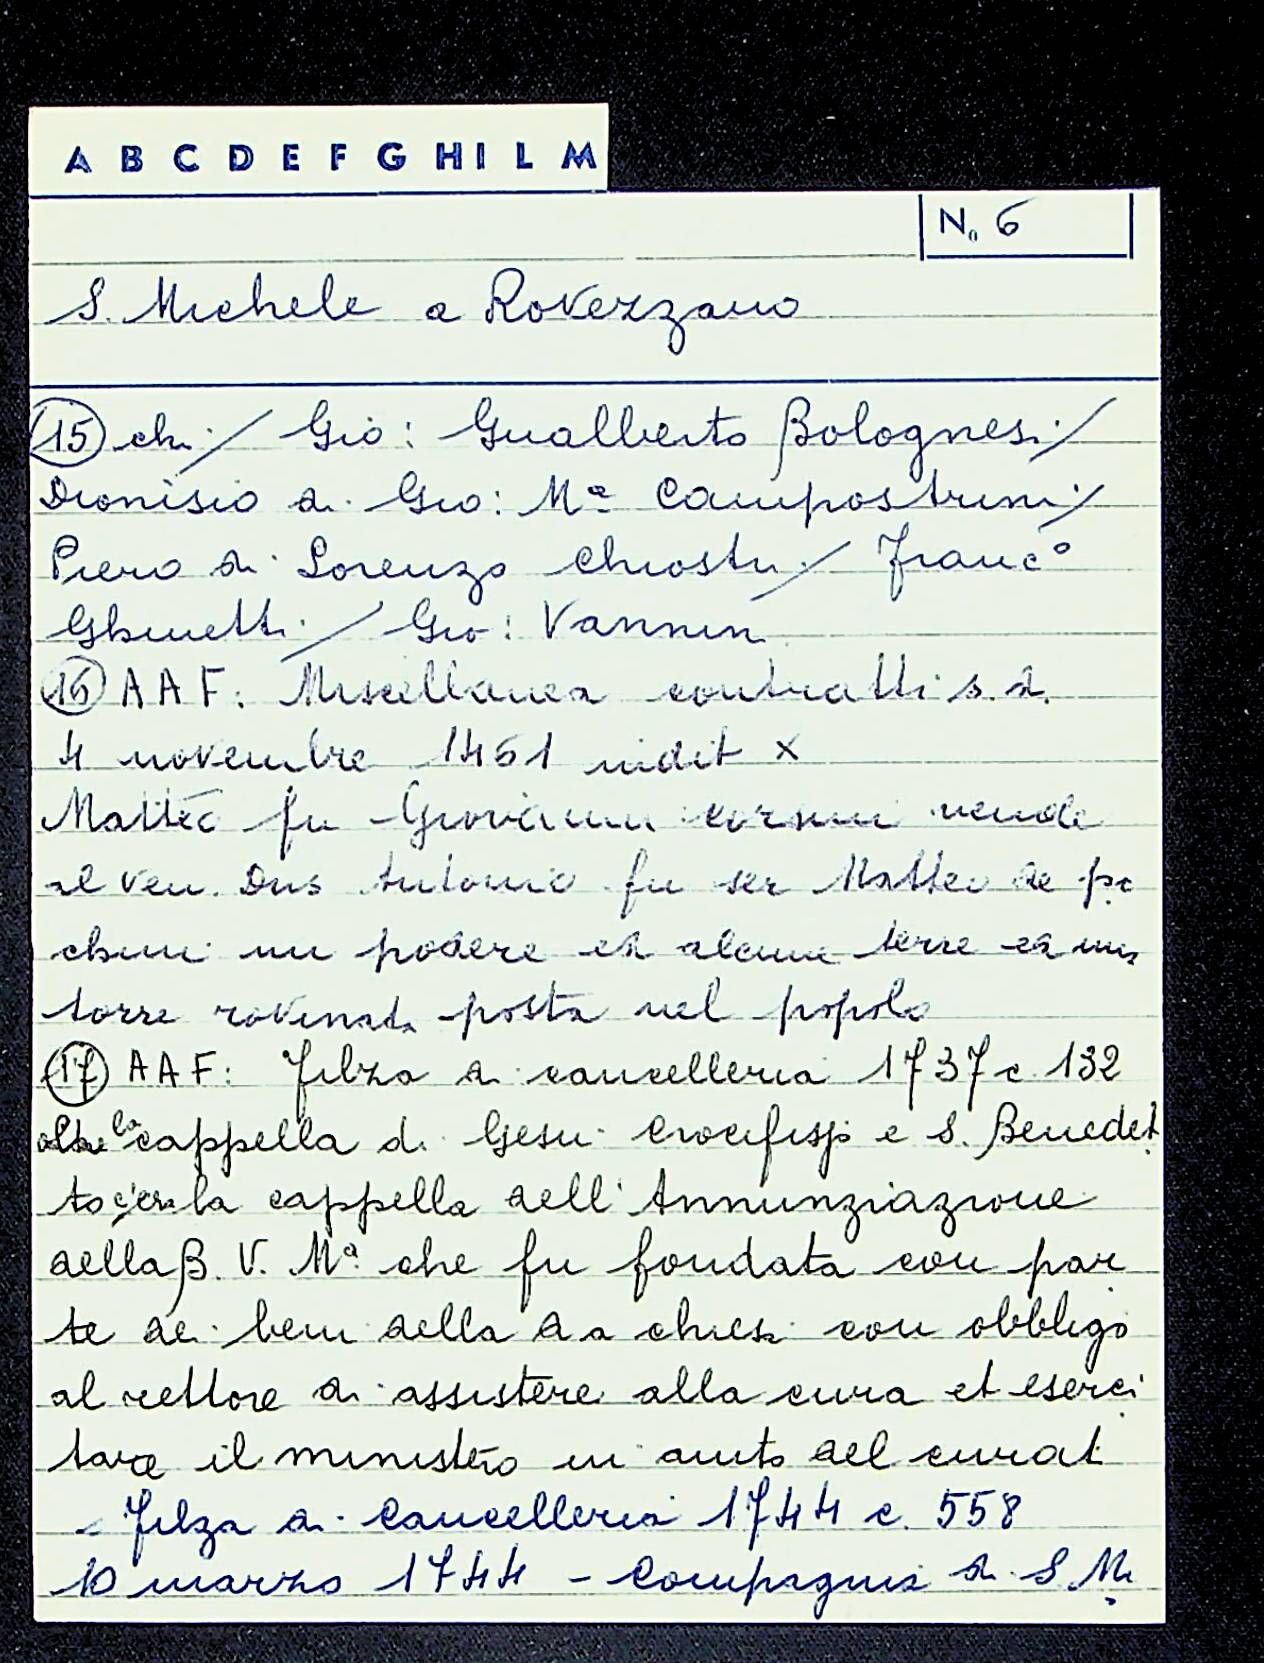 A B C D E F G H I L M
N. 6
S. Michele a Rovezzano
(15) chi / Gio: Gualberto Bolognesi /
Dionisio di Gio: Mª Campostrini /
Piero di Lorenzo Chiostri / Franc°
Ghinetti / Gio: Vannini
(16) AAF: Miscellanea contratti s.d.
4 novembre 1461 indit X
Matteo fu Giovanni corsini vende
al ven. Dns Antonio fu ser Matteo de pc
chini un podere ed alcune terre ed una
torre rovinata posta nel popolo
(17) AAF: Filza di cancelleria 1737 c 132
oltre la cappella di Gesù Crocifisso e S. Benedet
to c'era la cappella dell'Annunziazione
della B. V. Mª che fu fondata con par
te dei beni della da chiesa con obbligo
al rettore di assistere alla cura et eserci
tare il ministero in aiuto del curat
- Filza di Cancelleria 1744 c. 558
10 marzo 1744 - Compagnia di S Mi